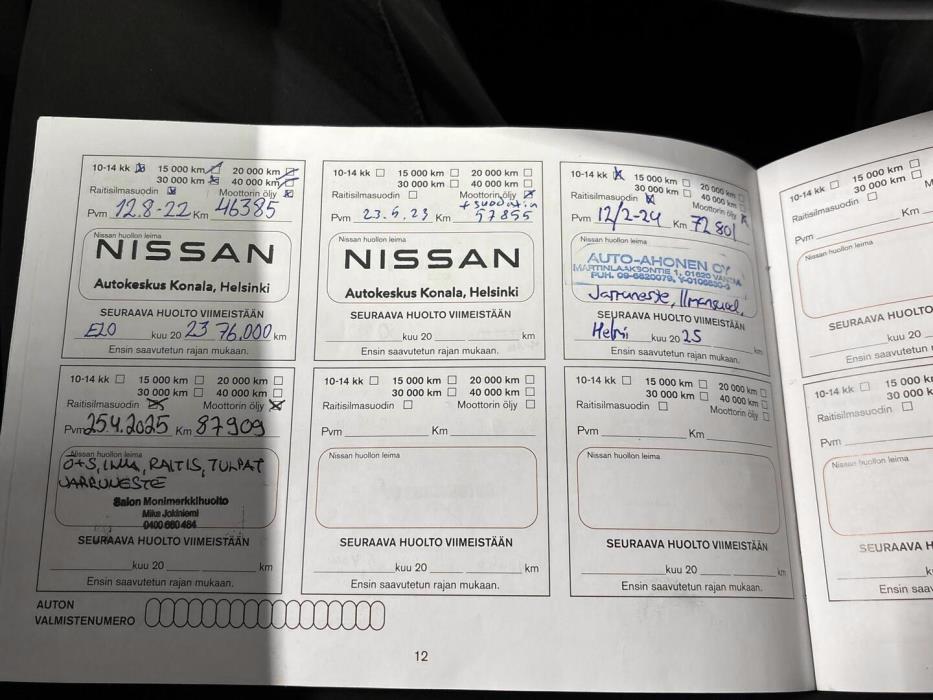 10-14 kk 15 000 km 20 000 km
30 000 km 40 000 km
Raitisilmasuodin Moottorin öljy
Pvm 12.8-22 Km 46385
Nissan huollon leima
NISSAN
Autokeskus Konala, Helsinki
SEURAAVA HUOLTO VIIMEISTÄÄN
ELO kuu 20 23 76.000 km
Ensin saavutetun rajan mukaan.
10-14 kk 15 000 km 20 000 km
30 000 km 40 000 km
Raitisilmasuodin Moottorin öljy
+ suodatin
Pvm 23.5.23 Km 57855
Nissan huollon leima
NISSAN
Autokeskus Konala, Helsinki
SEURAAVA HUOLTO VIIMEISTÄÄN
kuu 20 km
Ensin saavutetun rajan mukaan.
10-14 kk 15 000 km 20 000 km
30 000 km 40 000 km
Raitisilmasuodin Moottorin öljy
Pvm 12/2-24 Km 72801
Nissan huollon leima
AUTO-AHONEN OY
MARTINLAAKSONTIE 1, 01620 VANTAA
PUH. 09-6620079,
Jarruneste, Ilmansuod.
SEURAAVA HUOLTO VIIMEISTÄÄN
Helmi kuu 20 25 km
Ensin saavutetun rajan mukaan.
10-14 kk 15 000 km 20 000 km
30 000 km 40 000 km
Raitisilmasuodin Moottorin öljy
Pvm 25.4.2025 Km 87909
Nissan huollon leima
Ö+S, ILMA, RAITIS, TULPAT
JARRUNESTE
Salon Monimerkkihuolto
Mika Jokiniemi
0400 660 484
SEURAAVA HUOLTO VIIMEISTÄÄN
kuu 20 km
Ensin saavutetun rajan mukaan.
10-14 kk 15 000 km 20 000 km
30 000 km 40 000 km
Raitisilmasuodin Moottorin öljy
Pvm Km
Nissan huollon leima
SEURAAVA HUOLTO VIIMEISTÄÄN
kuu 20 km
Ensin saavutetun rajan mukaan.
10-14 kk 15 000 km 20 000 km
30 000 km 40 000 km
Raitisilmasuodin Moottorin öljy
Pvm Km
Nissan huollon leima
SEURAAVA HUOLTO VIIMEISTÄÄN
kuu 20 km
Ensin saavutetun rajan mukaan.
AUTON
VALMISTENUMERO
12
10-14 kk 15 000 km
30 000 km
Raitisilmasuodin
Pvm Km
Nissan huollon leima
SEURAAVA HUOLTO
kuu 20
Ensin saavutetun
10-14 kk 15 000 k
30 000 k
Raitisilmasuodin
Pvm
Nissan huollon leima
SEURAAVA H
Ensin saav